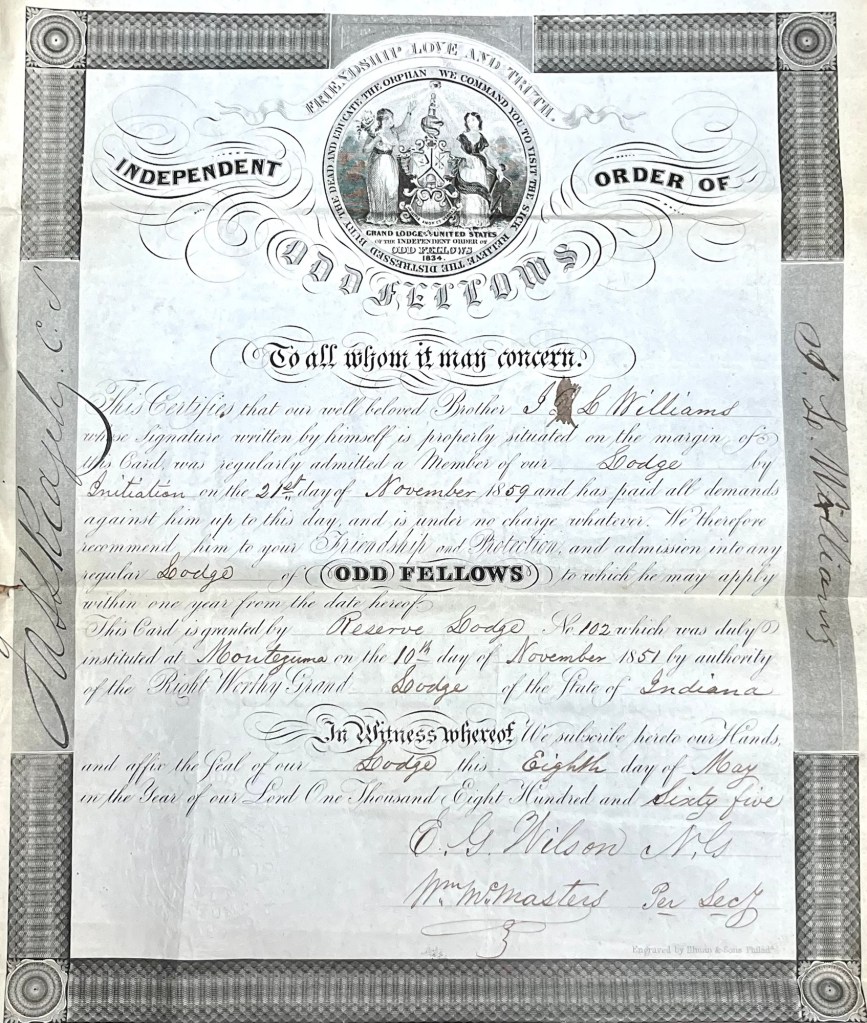 FRIENDSHIP LOVE AND TRUTH.
WE COMMAND YOU TO VISIT THE SICK RELIEVE THE DISTRESSED BURY THE DEAD AND EDUCATE THE ORPHAN
INDEPENDENT ORDER OF
GRAND LODGE OF THE UNITED STATES
OF THE INDEPENDENT ORDER OF
ODD FELLOWS
1834.
ODD FELLOWS
To all whom it may concern.
This Certifies that our well beloved Brother J L Williams
whose Signature written by himself is properly situated on the margin of
this Card, was regularly admitted a Member of our Lodge by
Initiation on the 21st day of November 1859 and has paid all demands
against him up to this day, and is under no charge whatever. We therefore
recommend him to your Friendship and Protection, and admission into any
regular Lodge of ODD FELLOWS to which he may apply
within one year from the date hereof.
This Card is granted by Reserve Lodge No. 102 which was duly
instituted at Montezuma on the 10th day of November 1851 by authority
of the Right Worthy Grand Lodge of the State of Indiana
In Witness whereof, We subscribe hereto our Hands,
and affix the Seal of our Lodge this Eighth day of May
in the Year of our Lord One Thousand Eight Hundred and Sixty five
E. G. Wilson N.G
Wm McMasters Per Secy
Engraved by Illman & Sons Philada.
J. L. Williams